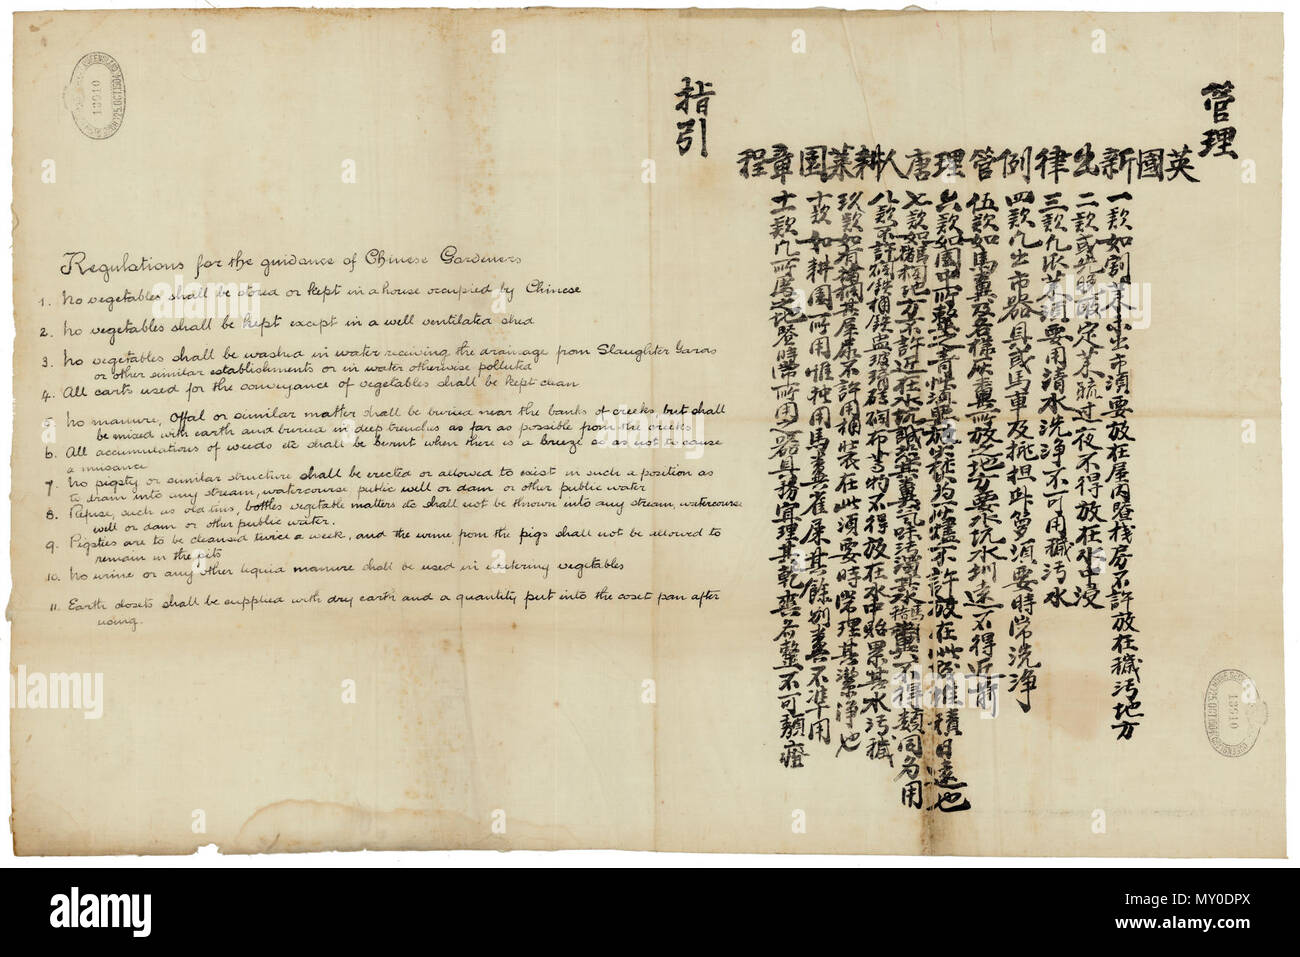 Regulations for the guidance of Chinese Gardeners
1. No vegetables shall be stored or kept in a house occupied by Chinese
2. No vegetables shall be kept except in a well ventilated shed
3. No vegetables shall be washed in water receiving the drainage from Slaughter Yards
or other similar establishments or in water otherwise polluted
4. All carts used for the conveyance of vegetables shall be kept clean
5. No manure, Offal or similar matter shall be buried near the banks of creeks, but shall
be mixed with earth and buried in deep trenches as far as possible from the creeks
6. All accumulations of weeds etc shall be burnt when there is a breeze so as not to cause
a nuisance
7. No pigsty or similar structure shall be erected or allowed to exist in such a position as
to drain into any stream, watercourse public well or dam or other public water
8. Refuse, such as old tins, bottles vegetable matters &c shall not be thrown into any stream, watercourse
well or dam or other public water.
9. Pigsties are to be cleansed twice a week, and the urine from the pigs shall not be allowed to
remain in the pits
10. No urine or any other liquid manure shall be used in watering vegetables
11. Earth closets shall be supplied with dry earth and a quantity put into the closet pan after
using.
管理
英國新出律例管理唐人耕菜園章程
一款如割菜出市須要放在屋內暨棧房不許放在穢污地方
二款或光頭定菜蔬过夜不得放在水中浸
三款凡洗菜須要用清水洗淨不可用穢污水
四款凡出市器具或馬車及挑担籮須要時常洗淨
伍款如馬糞及各樣灰糞所放之地方要水坑水圳遠不得近前
六款如園中所整之青草放在此堆積日遠也
七款如猪欄地方不許近在水坑糞氣味污濁其水猪糞不得類同為用
八款不許砵鉄桶鉄盅玻璃布等物不得放在水中貽累其水污穢
玖款如有猪欄其屎尿不許用桶裝在此須要時常理其潔淨也
十款如耕園所用惟独用馬糞雀屎其餘別糞不准用
十一款凡所屬之地暨時常所用之器具務宜理其乾爽齐整不可頹
指引
18910
18910
alamy
Image ID: MY0DPX
www.alamy.com